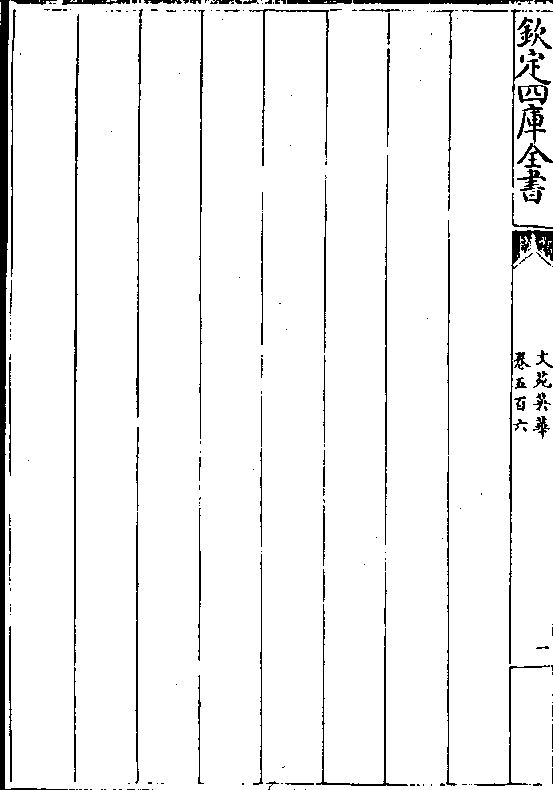 欽定四庫全書
文苑英華
卷五百六
一